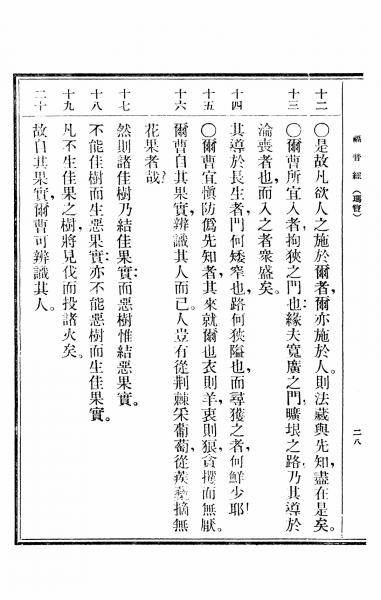 福音經（瑪竇） 二八
十二 〇是故凡欲人之施於爾者，爾亦施於人。則法藏與先知，盡在是矣。
十三 〇爾曹所宜入者，拘狹之門也；緣夫寬廣之門，曠垠之路，乃其導於
淪喪者也，而入之者衆盛矣。
十四 其導於長生者，門何矮窄也，路何狹隘也，而尋獲之者，何鮮少耶！
十五 〇爾曹宜愼防僞先知者，其來就爾也，衣則羊，衷則狼，貪攫而無厭。
十六 爾曹自其果實，辨識其人而已。人豈有從荆棘采葡萄，從蒺藜摘無
花果者哉？
十七 然則諸佳樹乃結佳果實；而惡樹惟結惡果實。
十八 不能佳樹而生惡果實；亦不能惡樹而生佳果實。
十九 凡不生佳果之樹，將見伐而投諸火矣。
二十 故自其果實，爾曹可辨識其人。